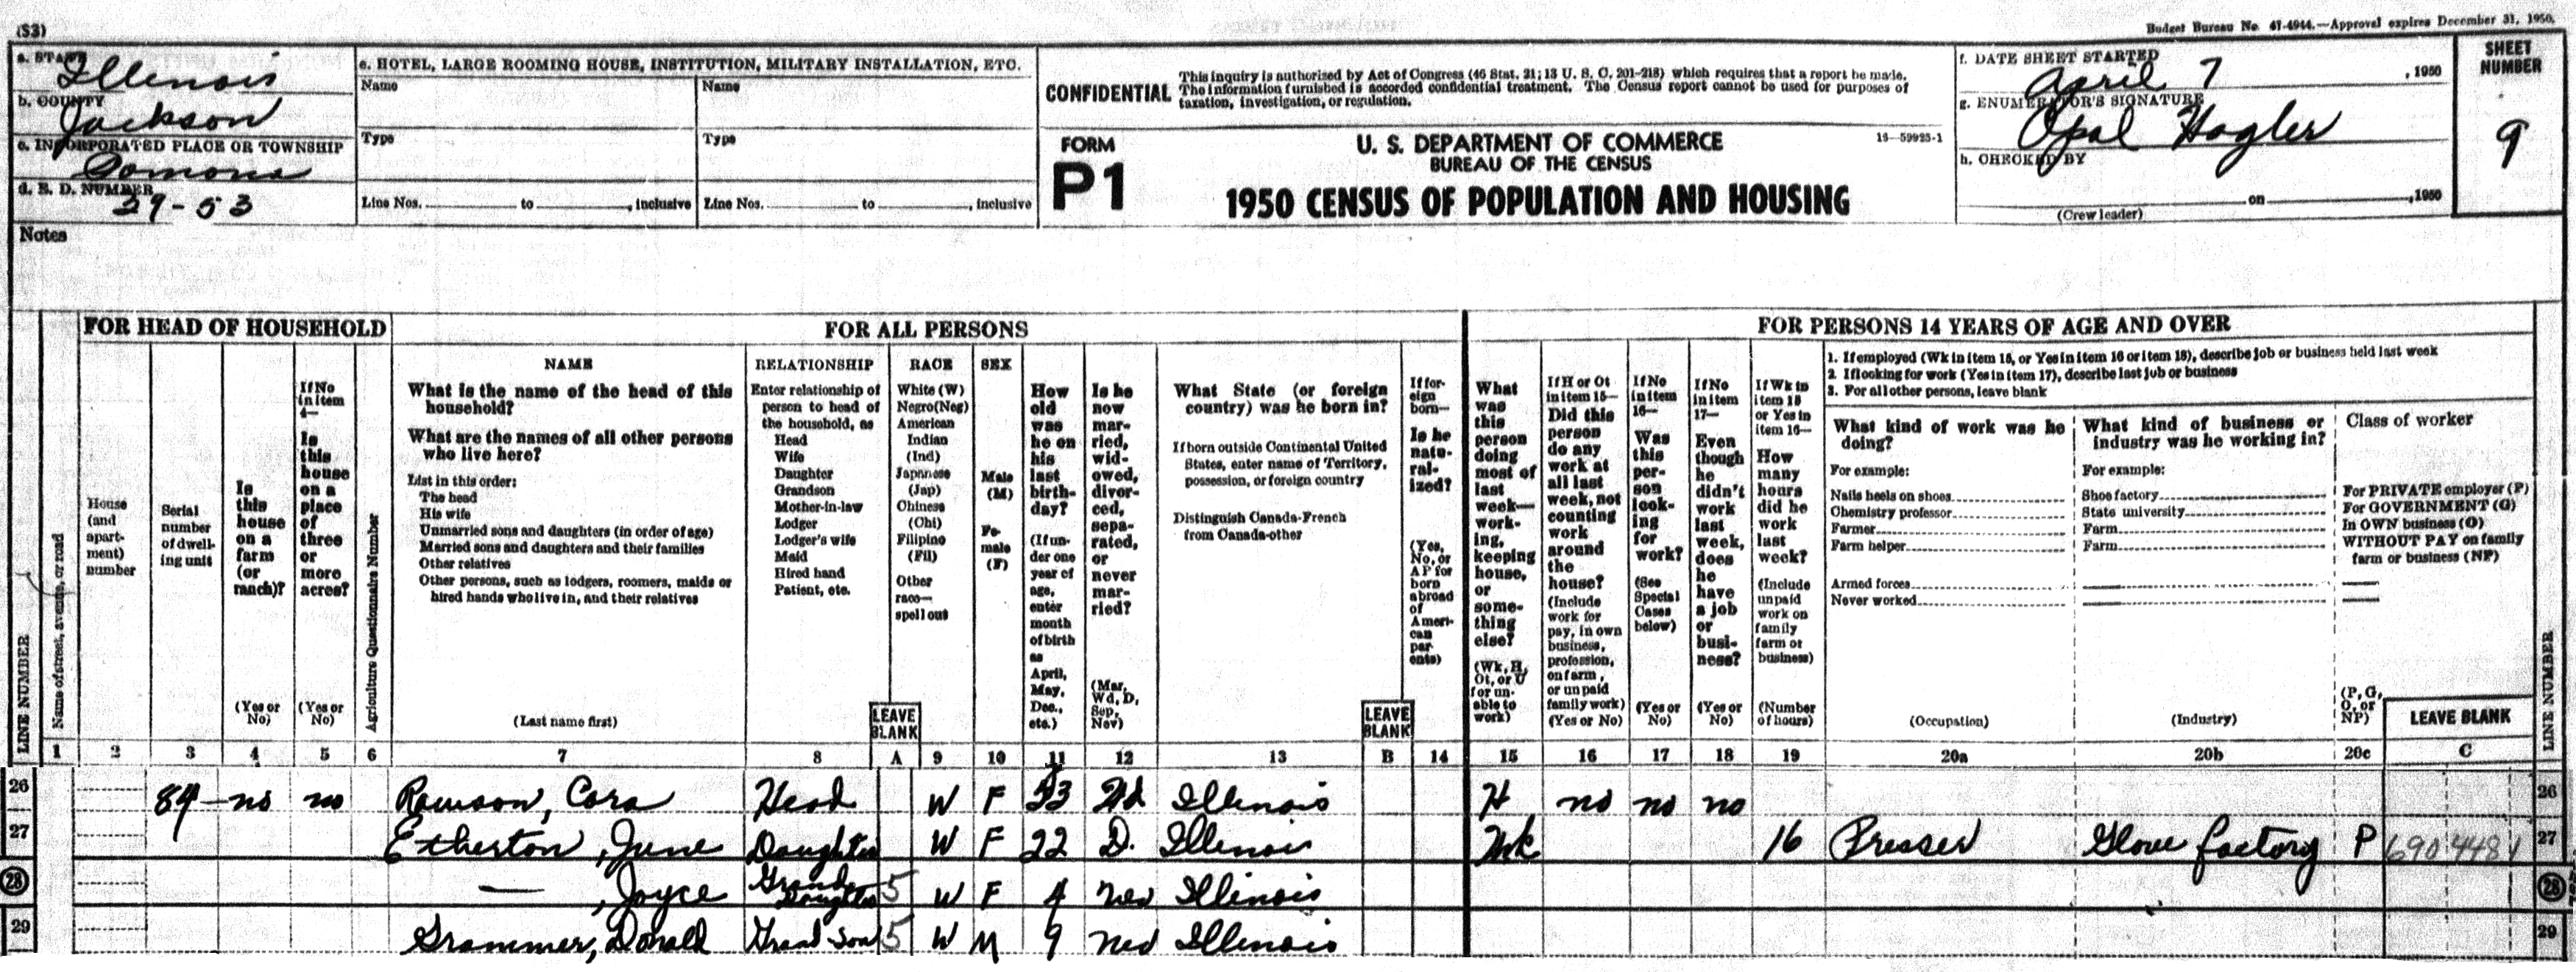 (S3)
Budget Bureau No. 41-4944.—Approval expires December 31, 1950.
a. STATE Illinois
b. COUNTY Jackson
c. INCORPORATED PLACE OR TOWNSHIP Pomona
d. E. D. NUMBER 39-53
e. HOTEL, LARGE ROOMING HOUSE, INSTITUTION, MILITARY INSTALLATION, ETC.
Name Name
Type Type
Line Nos. to , inclusive Line Nos. to , inclusive
CONFIDENTIAL
This inquiry is authorized by Act of Congress (46 Stat. 21; 13 U. S. C. 201-218) which requires that a report be made.
The information furnished is accorded confidential treatment. The Census report cannot be used for purposes of
taxation, investigation, or regulation.
FORM
P1
U. S. DEPARTMENT OF COMMERCE
BUREAU OF THE CENSUS
16—59925-1
1950 CENSUS OF POPULATION AND HOUSING
f. DATE SHEET STARTED
April 7 , 1950
g. ENUMERATOR'S SIGNATURE
Opal Hagler
h. CHECKED BY
on , 1950
(Crew leader)
SHEET
NUMBER
9
Notes
FOR HEAD OF HOUSEHOLD
FOR ALL PERSONS
FOR PERSONS 14 YEARS OF AGE AND OVER
LINE NUMBER
Name of street, avenue, or road
House
(and
apart-
ment)
number
Serial
number
of dwell-
ing unit
Is
this
house
on a
farm
(or
ranch)?
(Yes or
No)
If No
in item
4—
Is
this
house
on a
place
of
three
or
more
acres?
(Yes or
No)
Agriculture Questionnaire Number
NAME
What is the name of the head of this
household?
What are the names of all other persons
who live here?
List in this order:
The head
His wife
Unmarried sons and daughters (in order of age)
Married sons and daughters and their families
Other relatives
Other persons, such as lodgers, roomers, maids or
hired hands who live in, and their relatives
(Last name first)
RELATIONSHIP
Enter relationship of
person to head of
the household, as
Head
Wife
Daughter
Grandson
Mother-in-law
Lodger
Lodger's wife
Maid
Hired hand
Patient, etc.
LEAVE
BLANK
RACE
White (W)
Negro (Neg)
American
Indian
(Ind)
Japanese
(Jap)
Chinese
(Chi)
Filipino
(Fil)
Other
race—
spell out
SEX
Male
(M)
Fe-
male
(F)
How
old
was
he on
his
last
birth-
day?
(If un-
der one
year of
age,
enter
month
of birth
as
April,
May,
Dec.,
etc.)
Is he
now
mar-
ried,
wid-
owed,
divor-
ced,
sepa-
rated,
or
never
mar-
ried?
(Mar,
Wd, D,
Sep,
Nev)
What State (or foreign
country) was he born in?
If born outside Continental United
States, enter name of Territory,
possession, or foreign country
Distinguish Canada-French
from Canada-other
LEAVE
BLANK
If for-
eign
born—
Is he
natu-
ral-
ized?
(Yes,
No, or
AP for
born
abroad
of
Ameri-
can
par-
ents)
What
was
this
person
doing
most of
last
week—
work-
ing,
keeping
house,
or
some-
thing
else?
(Wk, H,
Ot, or U
for un-
able to
work)
If H or Ot
in item 15—
Did this
person
do any
work at
all last
week, not
counting
work
around
the
house?
(Include
work for
pay, in own
business,
profession,
on farm,
or unpaid
family work)
(Yes or No)
If No
in item
16—
Was
this
per-
son
look-
ing
for
work?
(See
Special
Cases
below)
(Yes or
No)
If No
in item
17—
Even
though
he
didn't
work
last
week,
does
he
have
a job
or
busi-
ness?
(Yes or
No)
If Wk in
item 15
or Yes in
item 16—
How
many
hours
did he
work
last
week?
(Include
unpaid
work on
family
farm or
business)
(Number
of hours)
1. If employed (Wk in item 15, or Yes in item 16 or item 18), describe job or business held last week
2. If looking for work (Yes in item 17), describe last job or business
3. For all other persons, leave blank
What kind of work was he
doing?
For example:
Nails heels on shoes
Chemistry professor
Farmer
Farm helper
Armed forces
Never worked
(Occupation)
What kind of business or
industry was he working in?
For example:
Shoe factory
State university
Farm
Farm
(Industry)
Class of worker
For PRIVATE employer (P)
For GOVERNMENT (G)
In OWN business (O)
WITHOUT PAY on family
farm or business (NP)
(P, G,
O, or
NP)
LEAVE BLANK
LINE NUMBER
1 2 3 4 5 6 7 8 A 9 10 11 12 13 B 14 15 16 17 18 19 20a 20b 20c C
26 84 no no Rawson, Cora Head W F 53 Wd Illinois H no no no 26
27 Etherton, June Daughter W F 22 D. Illinois Wk 16 Presser Glove factory P 690 448 1 27
28 — , Joyce Grand Daughter 5 W F 4 Nev Illinois 28
29 Grammer, Donald Grand Son 5 W M 9 Nev Illinois 29